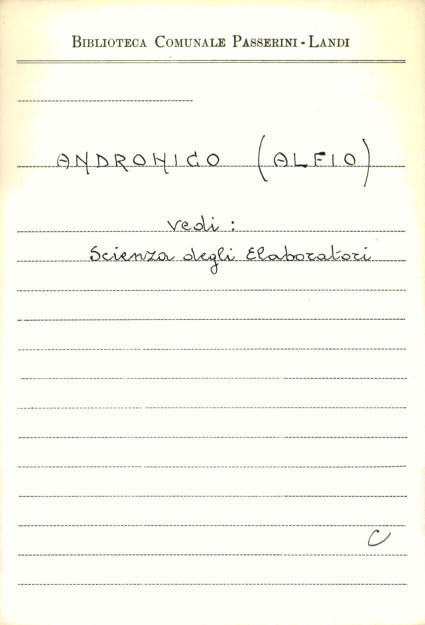 BIBLIOTECA COMUNALE PASSERINI - LANDI
ANDRONICO (ALFIO)
vedi :
Scienza degli Elaboratori
C